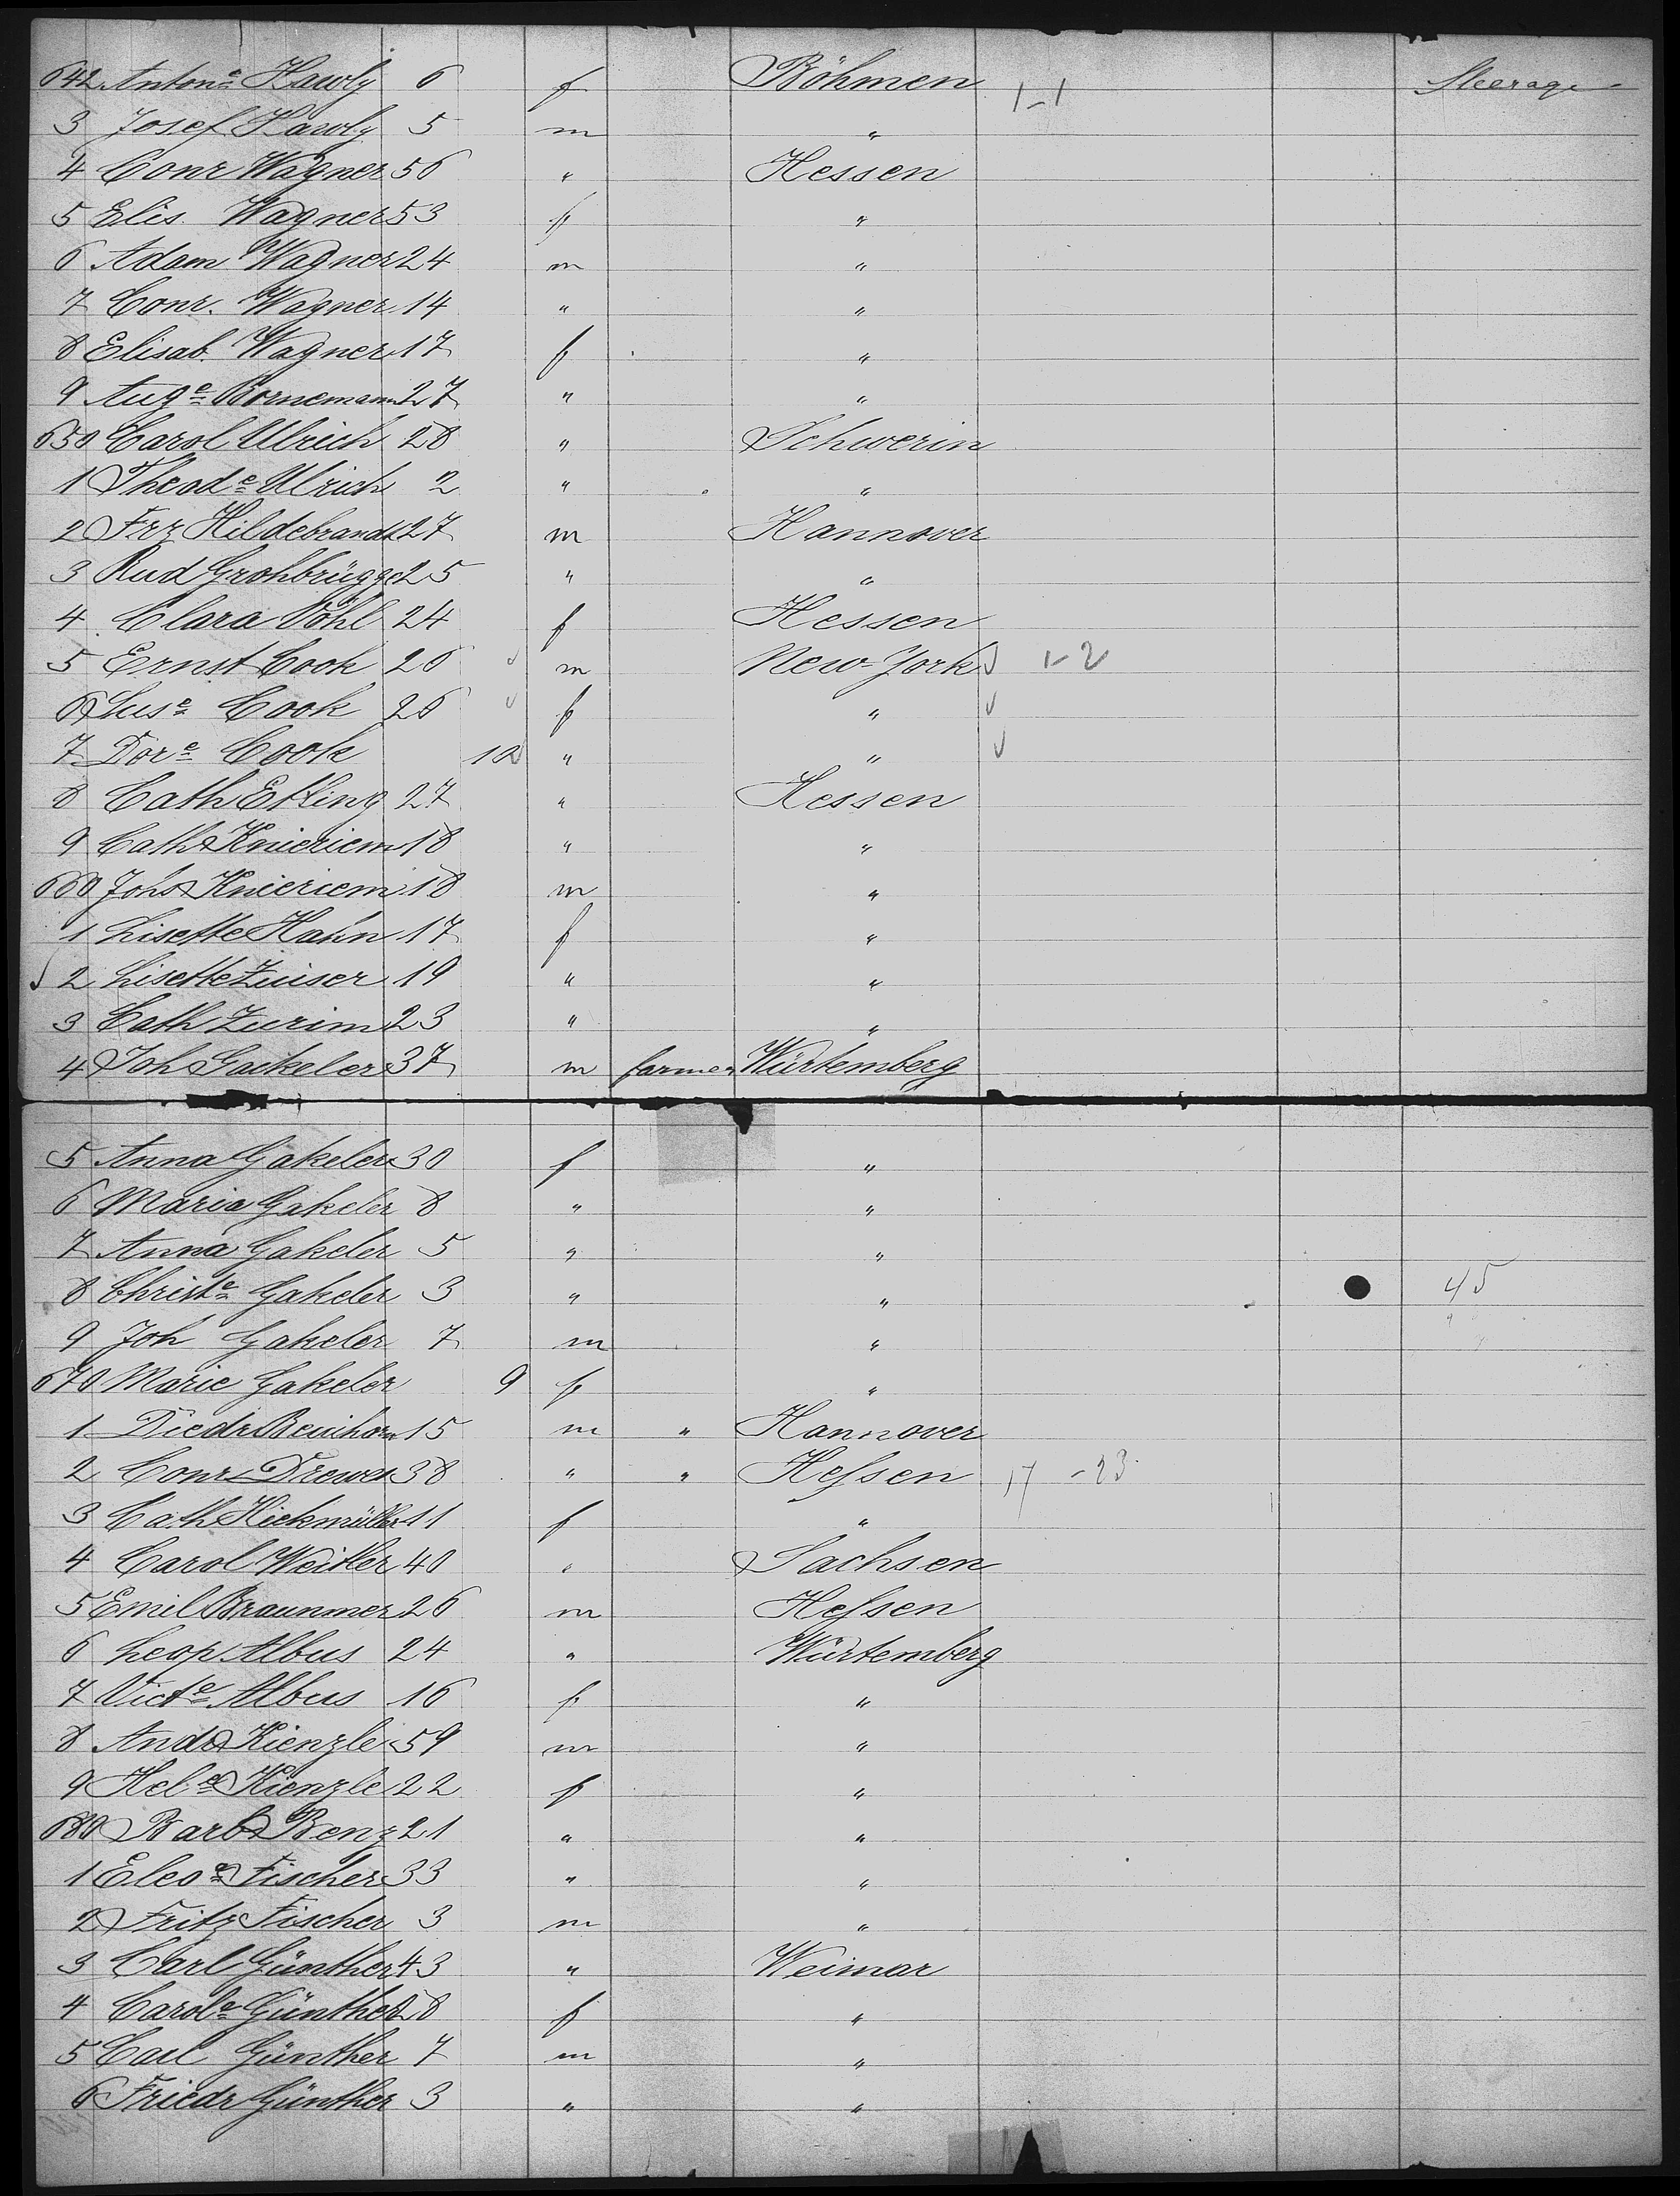 642 Antone Hawly 6 f Böhmen 1-1 Steerage
3 Josef Hawly 5 m "
4 Conr Wagner 56 " Hessen
5 Elis. Wagner 53 f "
6 Adam Wagner 24 m "
7 Conr. Wagner 14 " "
8 Elisab. Wagner 17 f "
9 Auge Bornemann 27 " "
650 Carol Ulrich 28 " Schwerin
1 Theode Ulrich 2 " "
2 Frz Hildebrandt 27 m Hannover
3 Rud Grohbrügge 25 " "
4 Clara Vöhl 24 f Hessen
5 Ernst Cook 26 m New-York 1-2
6 Suse Cook 26 f "
7 Dore Cook 10 " "
8 Cath Etling 27 " Hessen
9 Cath Knieriem 18 " "
660 Johs Knieriem 18 m "
1 Lisette Hahn 17 f "
2 Lisette Zuiser 19 " "
3 Cath Zurim 23 " "
4 Joh Gackeler 37 m farmer Würtemberg
5 Anna Gakeler 30 f "
6 Maria Gakeler 8 " "
7 Anna Gakeler 5 " "
8 Christe Gakeler 3 " " 45
9 Joh Gakeler 7 m "
670 Marie Gakeler 9 f "
1 Diedr Beuhorn 15 m " Hannover
2 Conr Drewes 38 " " Hessen 17 - 23
3 Cath Hickmüller 11 f "
4 Carol Weitler 40 " Sachsen
5 Emil Braunmer 26 m Hessen
6 Leop Albus 24 " Würtemberg
7 Victe Albus 16 f "
8 Andr Kienzle 59 m "
9 Hele Kienzle 22 f "
680 Barb Benz 21 " "
1 Eleoe Fischer 33 " "
2 Fritz Fischer 3 m "
3 Carl Günther 43 " Weimar
4 Carole Günther 28 f "
5 Carl Günther 7 m "
6 Friedr Günther 3 " "